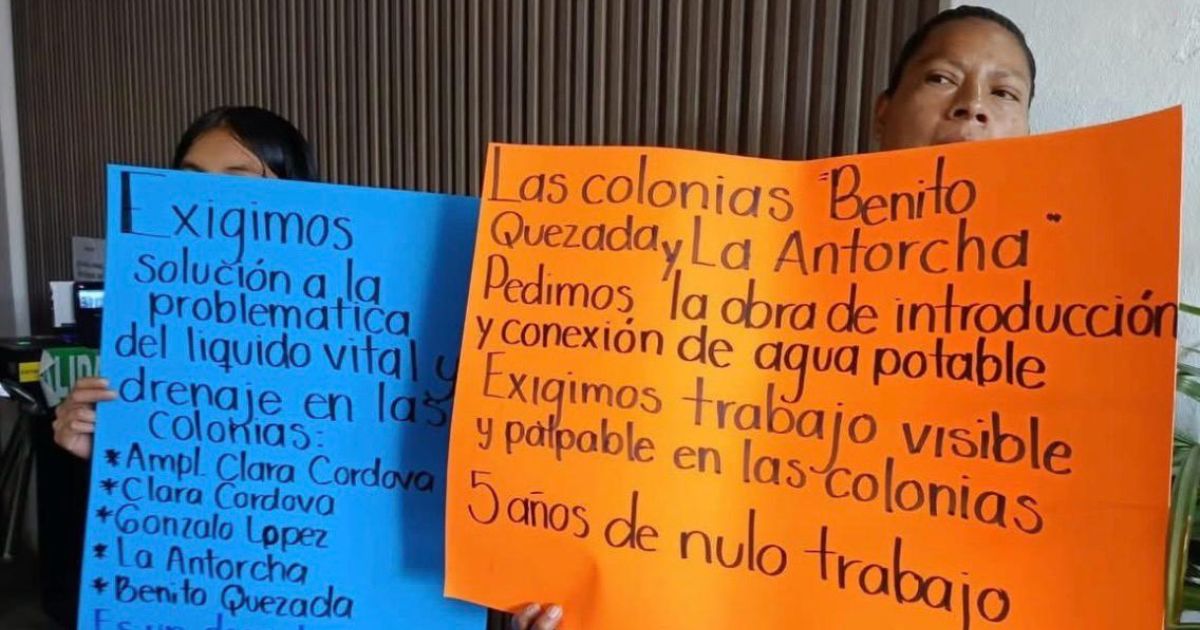 Exigimos
solución a la
problematica
del liquido vital y
drenaje en las
colonias:
*Ampl. Clara Cordova
*Clara Cordova
*Gonzalo Lopez
*La Antorcha
*Benito Quezada
Las colonias "Benito
Quezada y La Antorcha"
Pedimos la obra de introducción
y conexión de agua potable
Exigimos trabajo visible
y palpable en las colonias
5 años de nulo trabajo